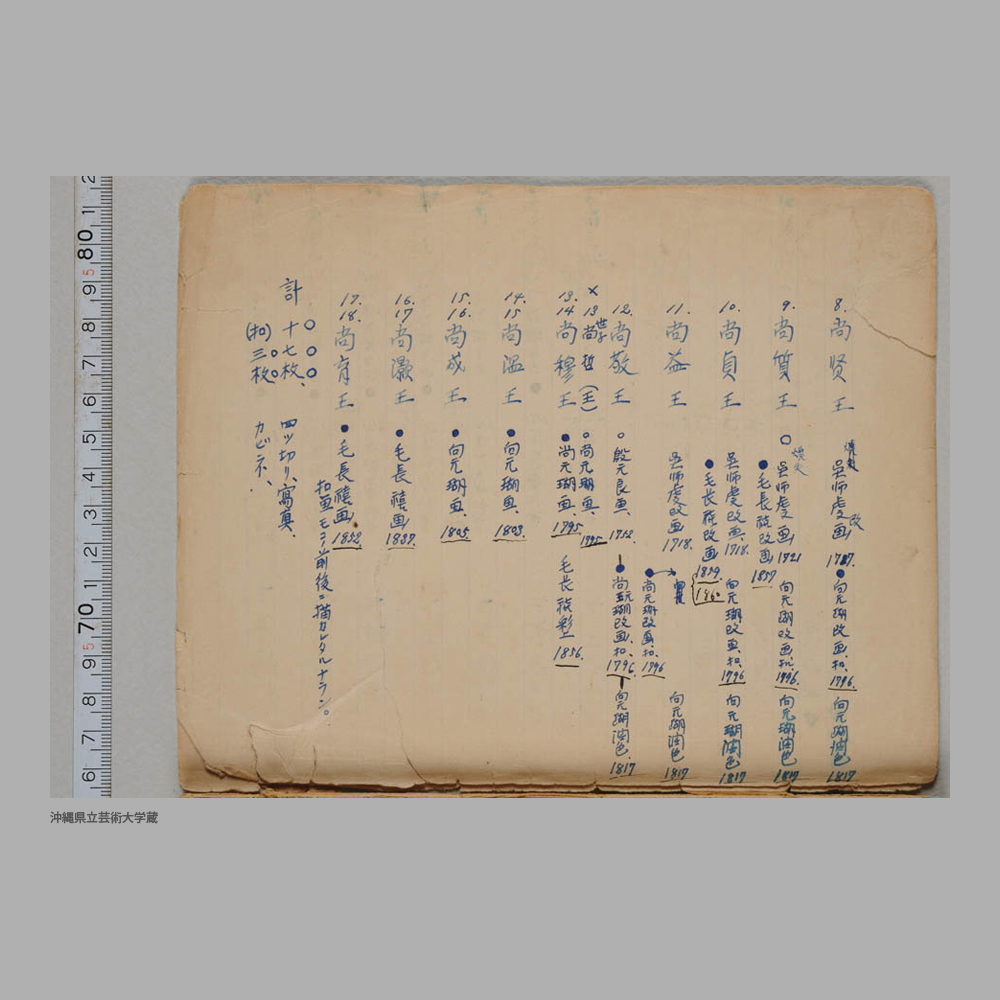 8. 尚賢王 燒失 吳師虔改画 1727. ●向元瑚改画、扣、1796. 向元瑚潤色 1817
9. 尚質王 ○燒失 吳師虔画 1721 向元瑚改画、扣、1796. 向元瑚潤色 1817
●毛長禧改画 1857
10. 尚貞王 吳師虔改画、1718. 向元瑚改画、扣、1796 向元瑚潤色 1817
●毛長禧改画 1859. 1860
11. 尚益王 吳師虔改画 1718. 向元瑚潤色 1817
●尚元瑚改画、扣、1796
12. 尚敬王 ○殷元良画、1752. ●尚元瑚改画、扣、1796. 向元瑚潤色、1817
× 13 世子 尚哲(王) ○尚元瑚画、1795
13. 14 尚穆王 ●尚元瑚画、1795. 毛長禧彩 1856.
14. 15 尚温王 ●向元瑚画、1803.
15. 16. 尚成王 ●向元瑚画、1805.
16. 17 尚灝王 ●毛長禧画 1837.
17. 18. 尚育王 ●毛長禧画 1852.
扣画モコノ前後ニ描カレタルナラン。
計 十七枚、 四ツ切リ、寫真、
(扣)三枚 カビネ、
沖縄県立芸術大学蔵
80
70